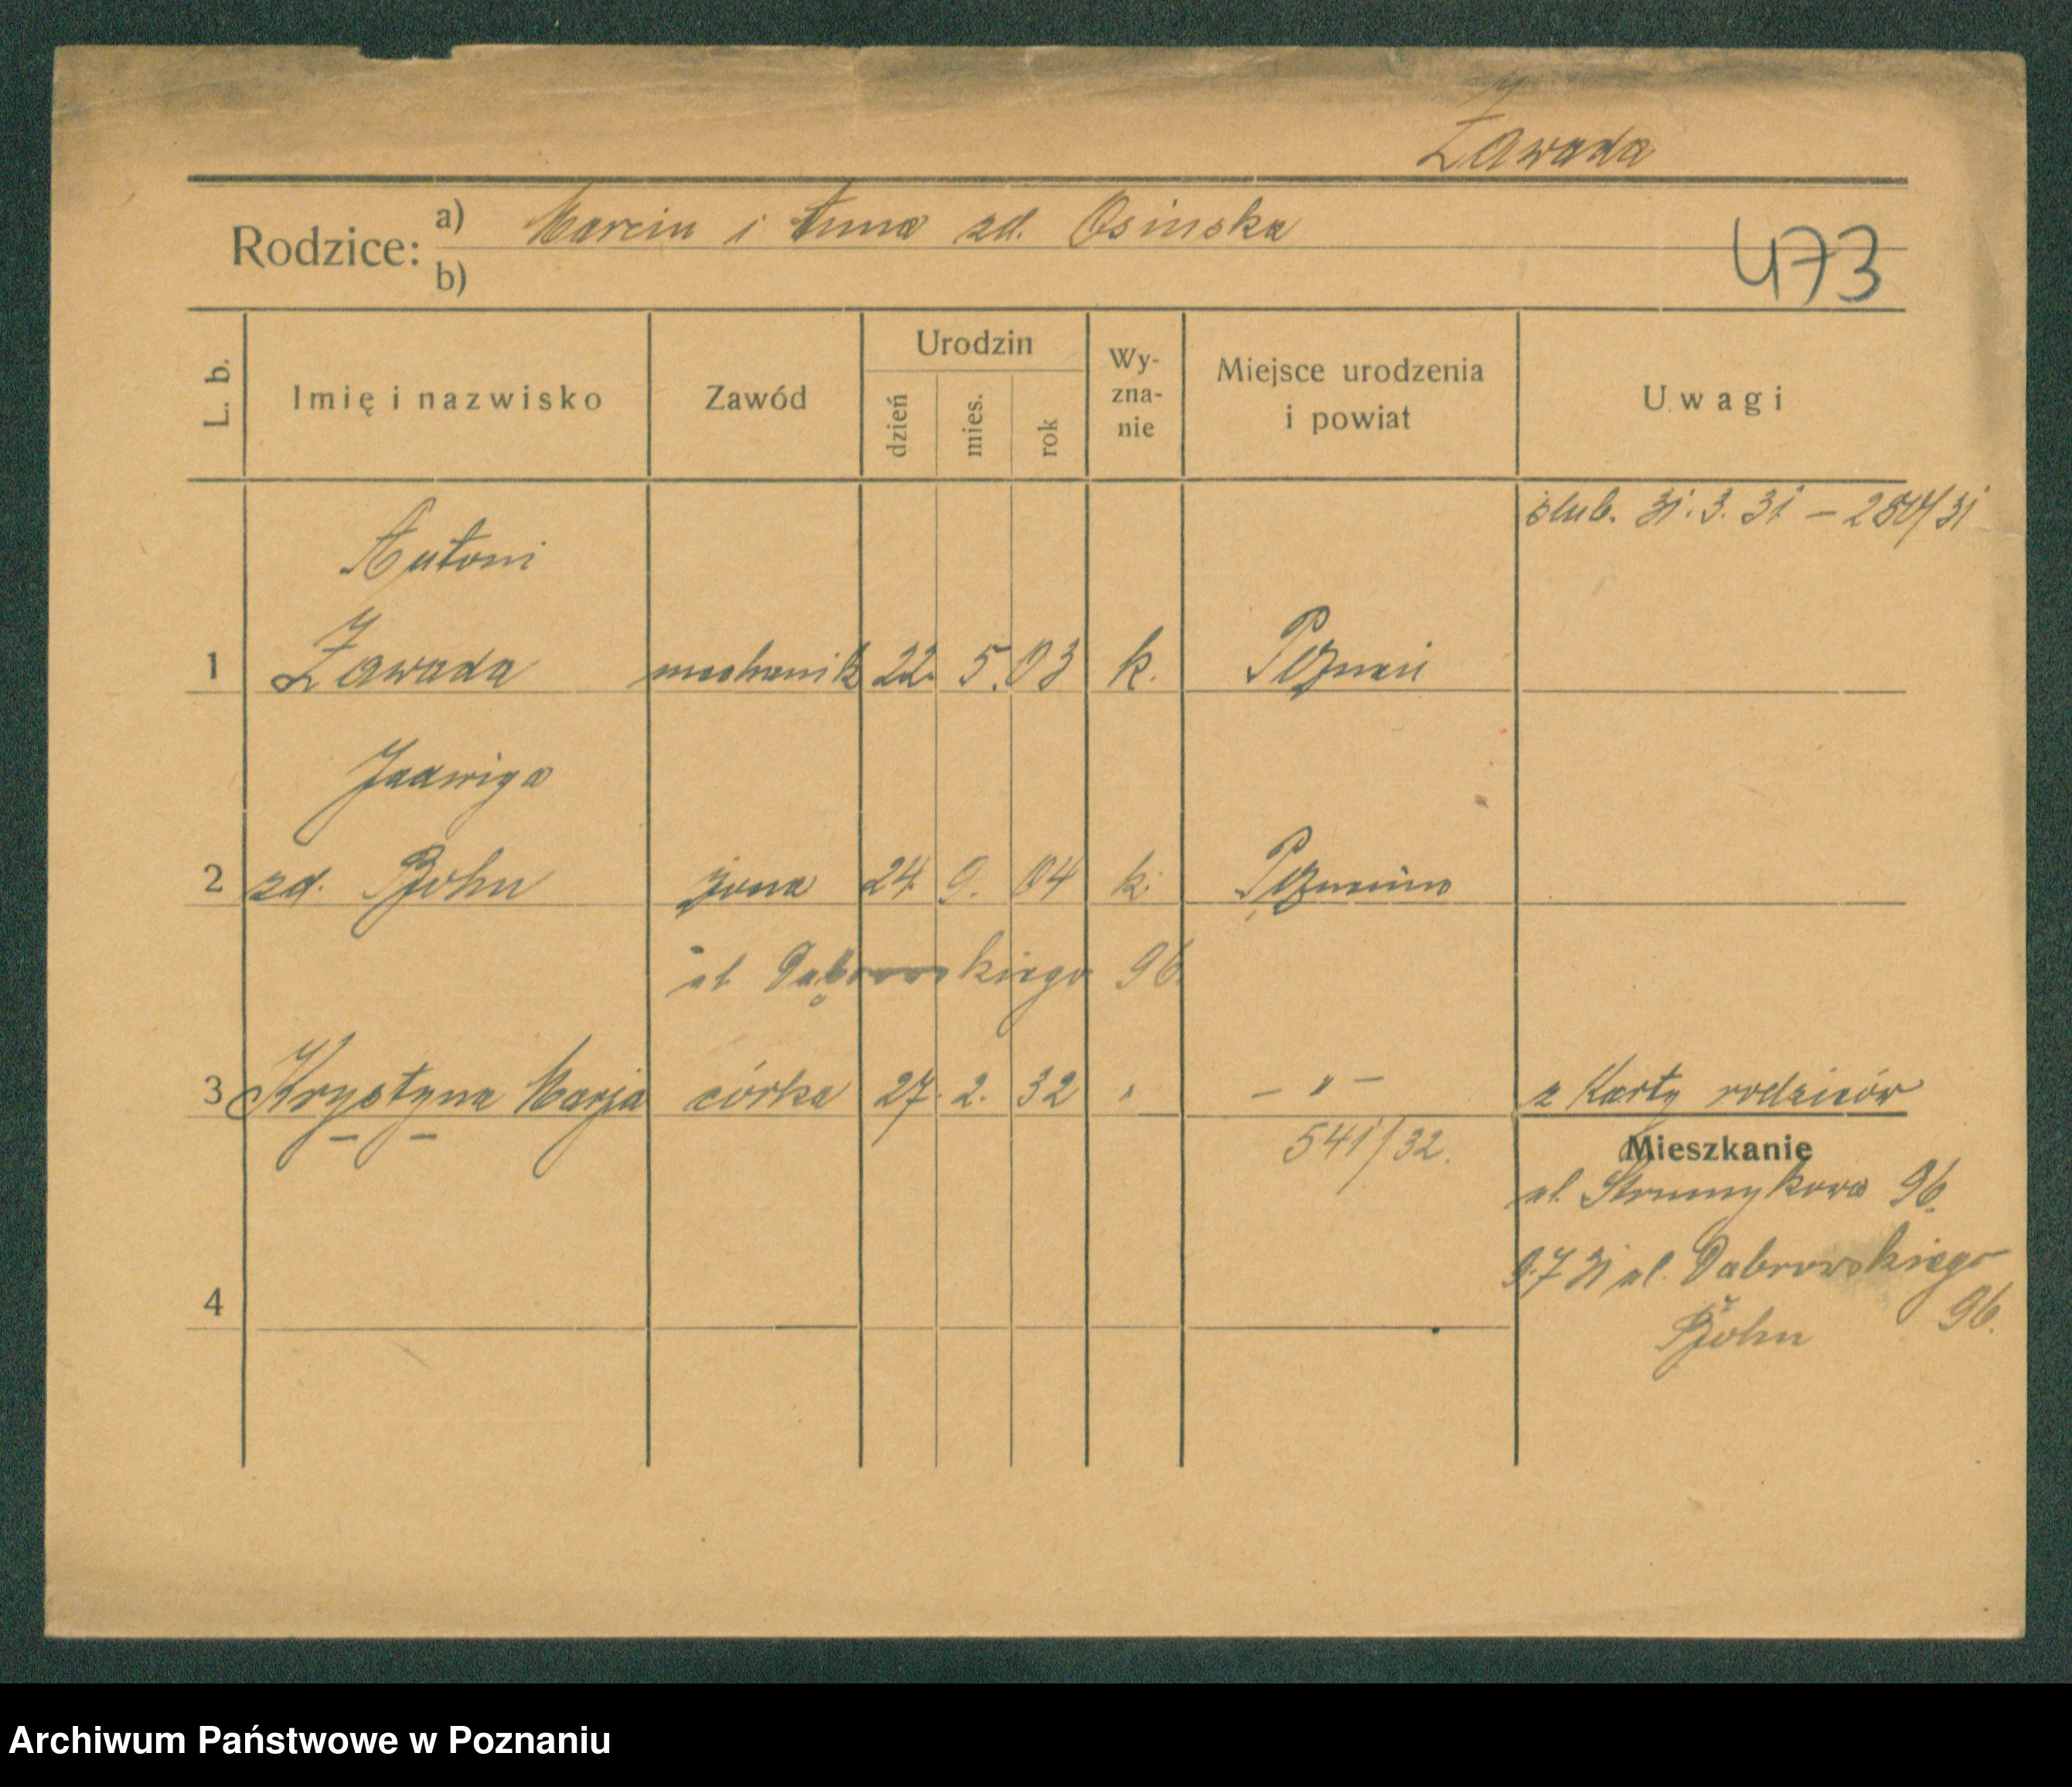 Zawada
Rodzice: a) Marcin i Anna zd. Osinska
b)
473
L. b.
Imię i nazwisko
Zawód
Urodzin
dzień
mies.
rok
Wy-
zna-
nie
Miejsce urodzenia
i powiat
Uwagi
ślub. 31. 3. 31 –
Antoni
1 Zawada mechanik 22. 5. 03 k. Poznań
Jadwiga
2 zd. żona 24. 9. 04 k.
ul. Dąbrowskiego 96.
3 Krystyna Marja córka 27. 2. 32 " – " – z Karty rodziców
541/32.
Mieszkanie
ul. Strumykowa 96.
9.7 31 ul. Dabrowskiego
96.
4
Archiwum Państwowe w Poznaniu